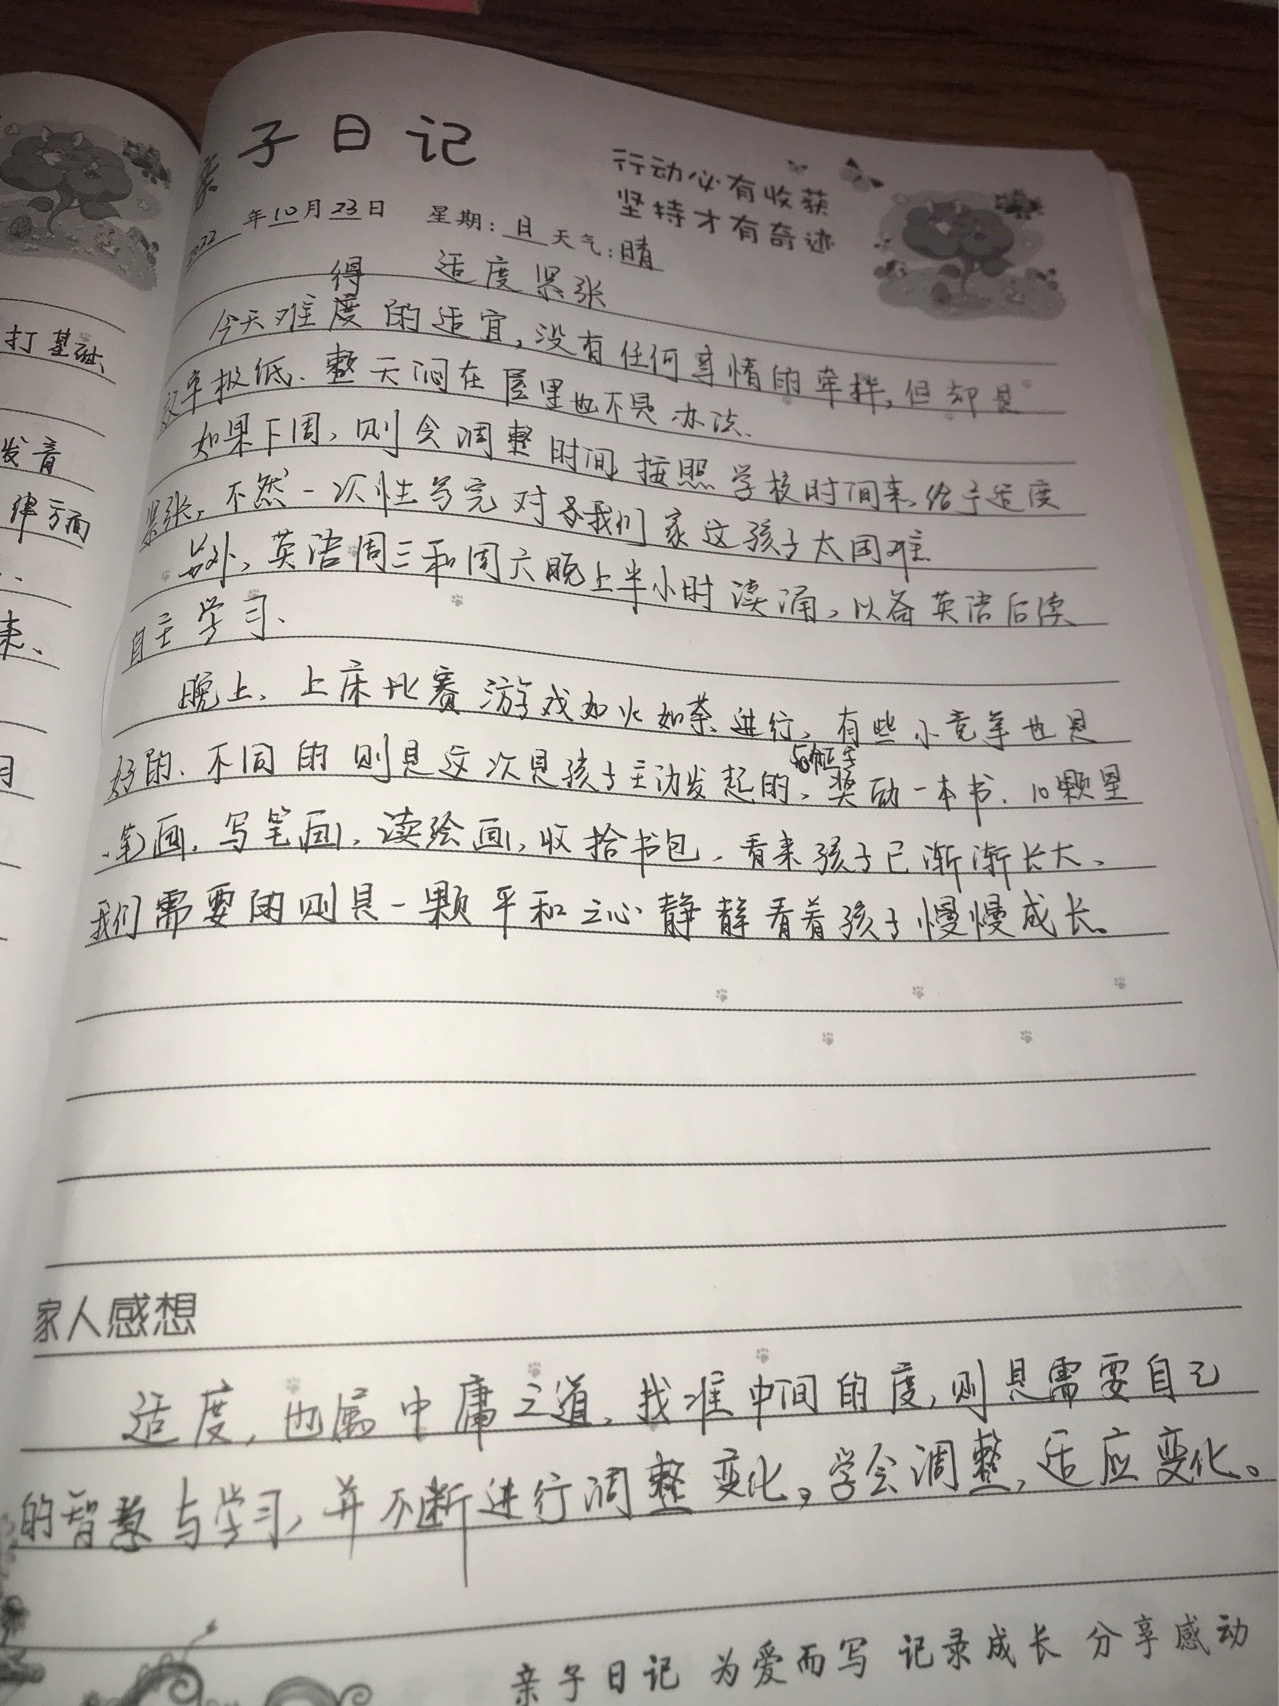 亲子日记
行动必有收获
坚持才有奇迹
2022年10月23日 星期:日 天气:晴
适度紧张
今天难得度的适宜,没有任何事情的牵拌,但却是
效率极低.整天闷在屋里也不是办法.
如果下周,则会调整时间,按照学校时间来,给予适度
紧张,不然一次性写完对于我们家这孩子太困难
另外,英语周三和周六晚上半小时读诵,以备英语后读
自主学习.
晚上.上床比赛游戏如火如荼进行,有些小竞争也是
好的.不同的则是这次是孩子主动发起的,奖励一本书.10颗星
.笔画.写笔画,读绘画,收拾书包.看来孩子已渐渐长大.
我们需要的则是一颗平和之心静静看着孩子慢慢成长。
家人感想
适度,也属中庸之道,找准中间的度,则是需要自己
的智慧与学习,并不断进行调整变化。学会调整,适应变化。
亲子日记 为爱而写 记录成长 分享感动
打基础
发音
律方面
来、